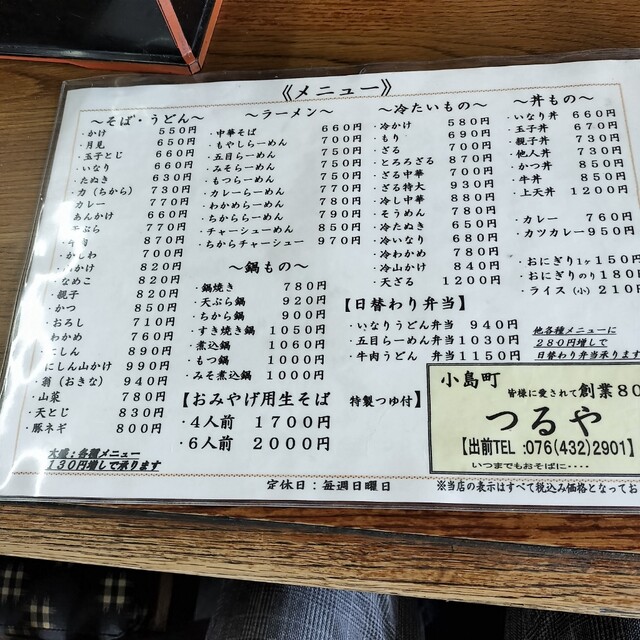 《メニュー》
〜そば・うどん〜
・かけ 550円
・月見 650円
・玉子とじ 660円
・いなり 660円
・たぬき 630円
・力（ちから） 730円
カレー 770円
あんかけ 660円
天ぷら 770円
牛肉 870円
かしわ 700円
820円
なめこ 820円
・親子 820円
・かつ 850円
・おろし 710円
・わかめ 760円
・にしん 890円
・にしん山かけ 990円
・翁（おきな） 940円
・山菜 780円
・天とじ 830円
・豚ネギ 800円
大盛：各種メニュー
130円増しで承ります
〜ラーメン〜
・中華そば 660円
・もやしらーめん 700円
・五目らーめん 750円
・みそらーめん 750円
・もつらーめん 750円
・カレーらーめん 770円
・わかめらーめん 780円
・ちかららーめん 790円
・チャーシューめん 850円
・ちからチャーシュー 970円
〜鍋もの〜
・鍋焼き 780円
・天ぷら鍋 920円
・ちから鍋 900円
・すき焼き鍋 1050円
・煮込鍋 1060円
・もつ鍋 1000円
・みそ煮込鍋 1000円
【おみやげ用生そば 特製つゆ付】
・4人前 1700円
・6人前 2000円
〜冷たいもの〜
・冷かけ 580円
・もり 690円
・ざる 700円
・とろろざる 870円
・ざる中華 700円
・ざる特大 930円
・冷し中華 880円
・そうめん 780円
・冷たぬき 650円
・冷いなり 680円
・冷わかめ 780円
・冷山かけ 840円
・天ざる 1200円
〜丼もの〜
・いなり丼 660円
・玉子丼 670円
・親子丼 730円
・他人丼 730円
・かつ丼 850円
・牛丼 850円
・上天丼 1200円
・カレー 760円
・カツカレー 950円
・おにぎり1ヶ 150円
・おにぎりのり 180円
・ライス（小） 210円
【日替わり弁当】
・いなりうどん弁当 940円
・五目らーめん弁当 1030円
・牛肉うどん 弁当 1150円
他各種メニューに
280円増しで
日替わり弁当承ります
小島町
皆様に愛されて創業80
つるや
【出前TEL :076(432)2901】
いつまでもおそばに・・・・
定休日：毎週日曜日
※当店の表示はすべて税込み価格となってお